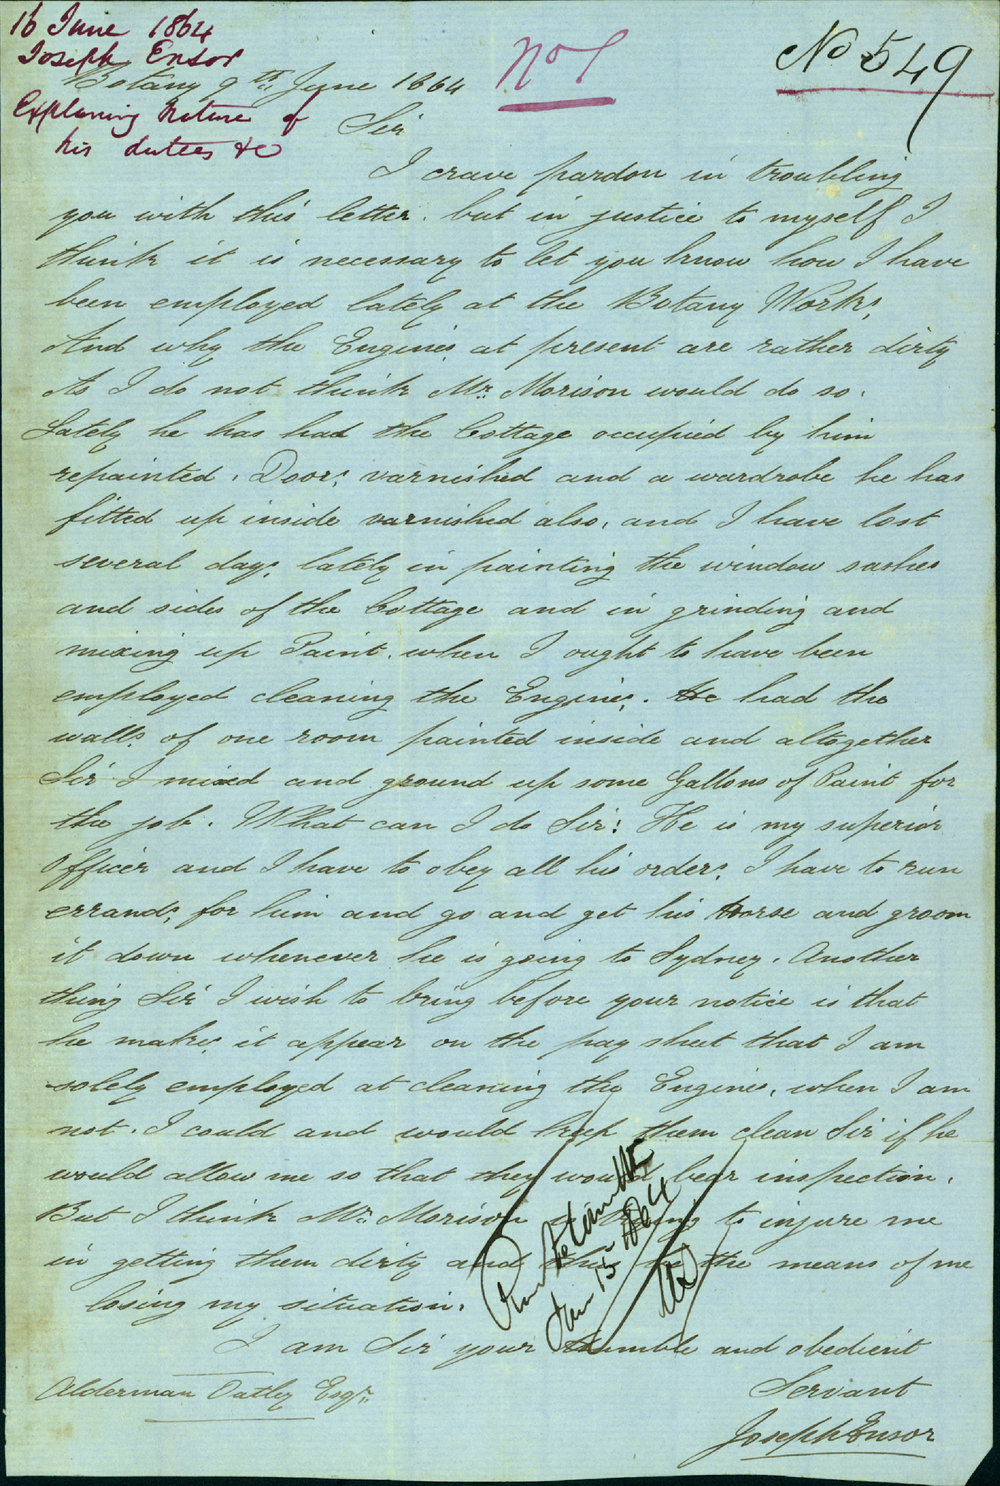 16 June 1864
Joseph Ensor
Explaining Nature of
his duties &c
No 1
No 549
Botany 9th June 1864
Sir
I crave pardon in troubling
you with this letter. but in justice to myself I
think it is necessary to let you know how I have
been employed lately at the Botany Works,
And why the Engines at present are rather dirty
As I do not think Mr. Morison would do so.
Lately he has had the Cottage occupied by him
repainted. Doors varnished and a wardrobe he has
fitted up inside varnished also, and I have lost
several days lately in painting the window sashes
and sides of the Cottage and in grinding and
mixing up Paint. when I ought to have been
employed cleaning the Engines. He had the
walls of one room painted inside and altogether
Sir I mixed and ground up some Gallons of Paint for
the job. What can I do Sir: He is my superior
Officer and I have to obey all his orders, I have to run
errands for him and go and get his Horse and groom
it down whenever he is going to Sydney. Another
thing Sir I wish to bring before your notice is that
he makes it appear on the pay sheet that I am
solely employed at cleaning the Engines, when I am
not. I could and would keep them clean Sir if he
would allow me so that they would bear inspection.
But I think Mr. Morison trying to injure me
in getting them dirty and this the means of me
losing my situation.
I am Sir your Humble and obedient
Servant
Joseph Ensor
Alderman Oatley Esqr.
15 1864